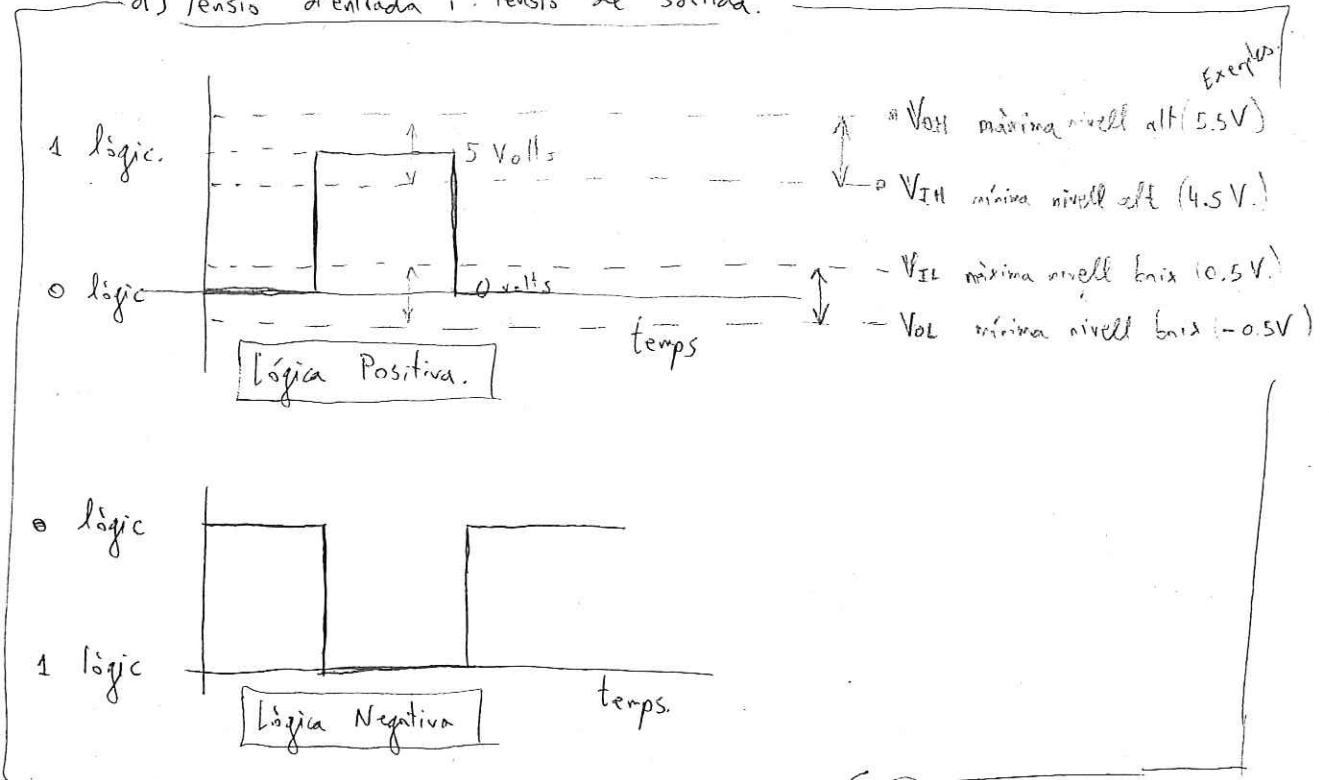 a) Tensió d'entrada i tensió de sortida.
Exemples.
1 lògic.
5 Volts
VOH màxima nivell alt (5.5V)
VIH mínima nivell alt (4.5V.)
0 lògic
0 volts
VIL màxima nivell baix (0.5V.)
VOL mínima nivell baix (-0.5V)
temps
Lógica Positiva.
0 lògic
1 lògic
temps.
Lògica Negativa